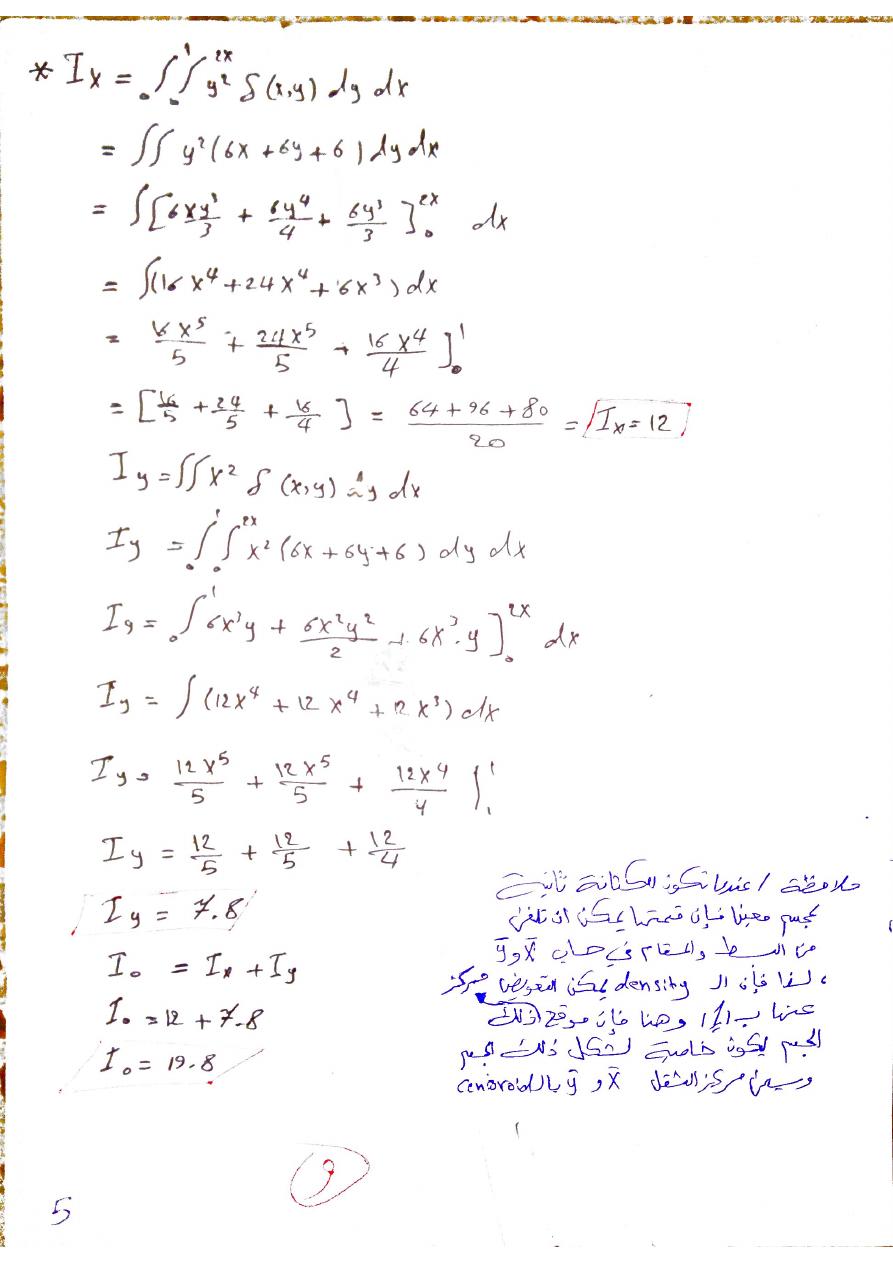 * Ix = ∫₀¹ ∫₀²ˣ y² δ(x,y) dy dx
= ∫∫ y² (6x + 6y + 6) dy dx
= ∫ [6xy³/3 + 6y⁴/4 + 6y³/3]₀²ˣ dx
= ∫(16x⁴ + 24x⁴ + 16x³) dx
= 16x⁵/5 + 24x⁵/5 + 16x⁴/4 ]₀¹
= [16/5 + 24/5 + 16/4] = (64 + 96 + 80)/20 = Ix = 12
Iy = ∫∫ x² δ(x,y) dy dx
Iy = ∫₀¹ ∫₀²ˣ x² (6x + 6y + 6) dy dx
Iy = ∫₀¹ 6x³y + 6x²y²/2 + 6x²·y ]₀²ˣ dx
Iy = ∫ (12x⁴ + 12x⁴ + 12x³) dx
Iy = 12x⁵/5 + 12x⁵/5 + 12x⁴/4 ]¹
Iy = 12/5 + 12/5 + 12/4
Iy = 7.8
I₀ = Ix + Iy
I₀ = 12 + 7.8
I₀ = 19.8
ملاحظة / عندما تكون الكثافة ثابتة
لجسم معين فإن قيمتها يمكن ان تلغى
من البسط والمقام في حساب x̄ و ȳ
، لذا فإن الـ density يمكن التعويض
عنها ب /1/ وهنا فإن موقع مركز ذلك
الجسم يكون خاصية لشكل ذلك الجسم
ويسمى مركز الثقل x̄ و ȳ بالـ cenoroid
9
5